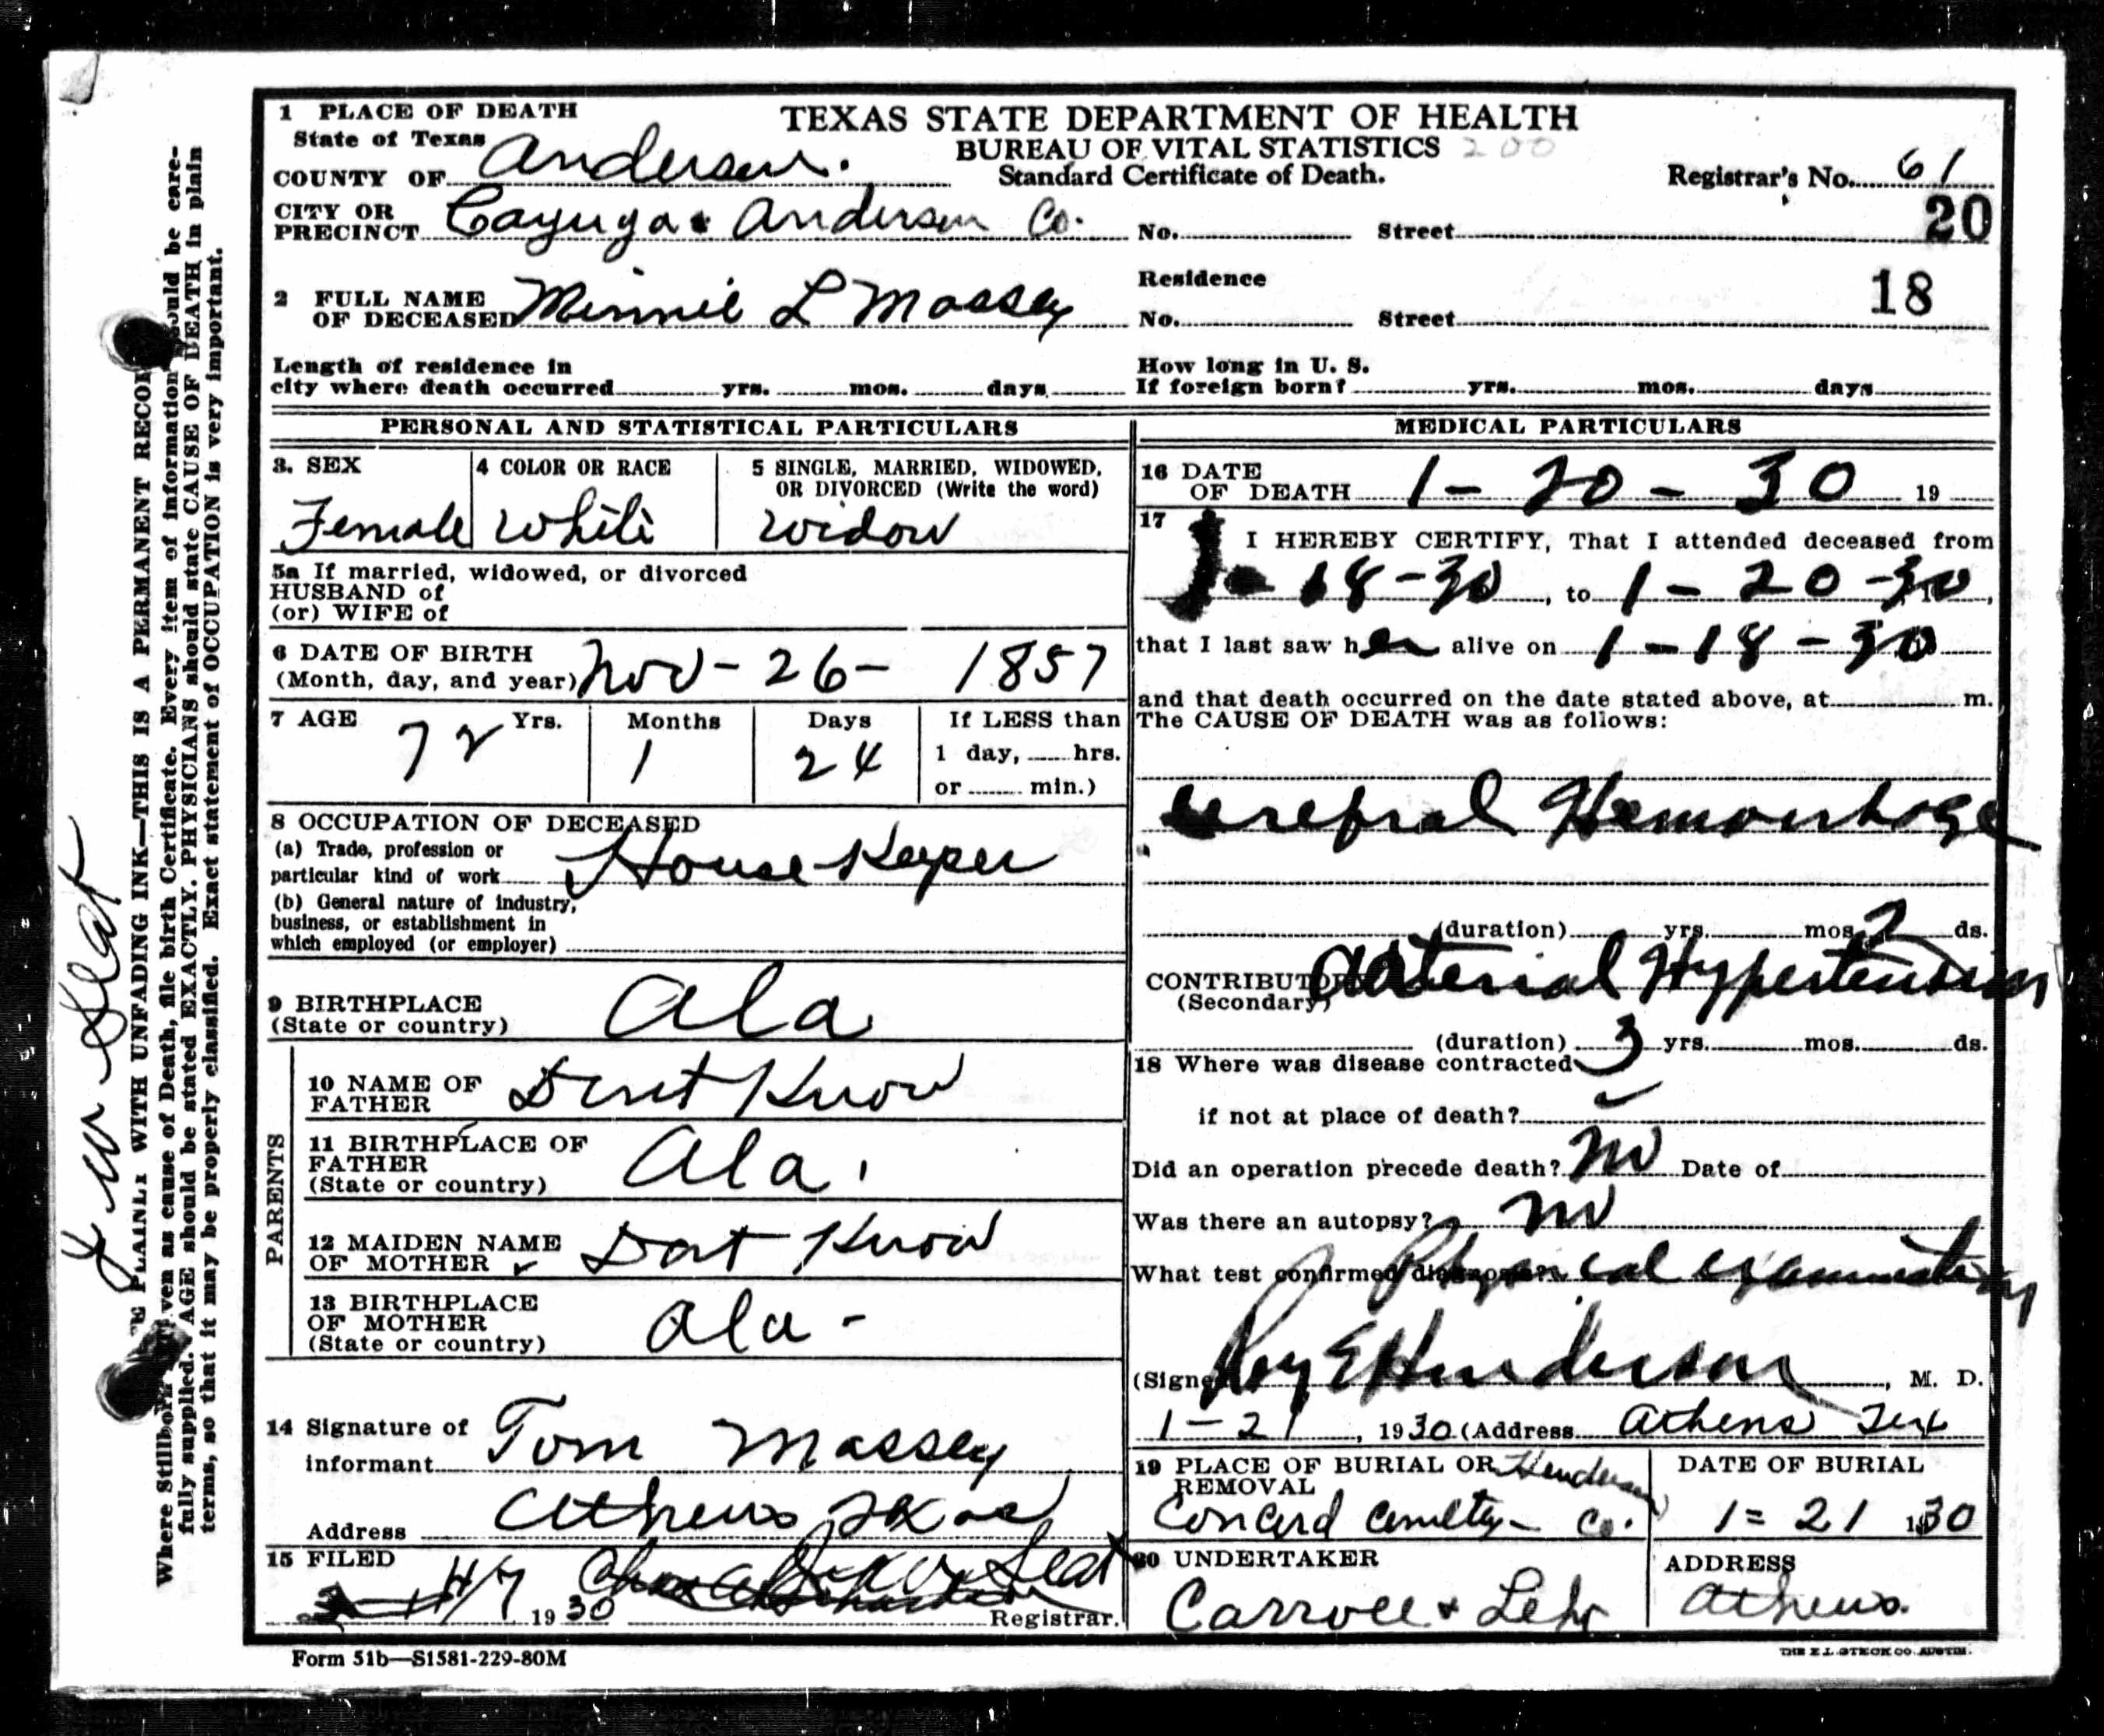 1 PLACE OF DEATH
State of Texas
COUNTY OF Anderson.
CITY OR PRECINCT Cayuga Anderson Co.
TEXAS STATE DEPARTMENT OF HEALTH
BUREAU OF VITAL STATISTICS 200
Standard Certificate of Death.
Registrar's No. 61
20
No. Street
2 FULL NAME OF DECEASED Minnie L Massey
Residence
18
No. Street
Length of residence in
city where death occurred yrs. mos. days
How long in U. S.
If foreign born? yrs. mos. days
PERSONAL AND STATISTICAL PARTICULARS
3. SEX
Female
4 COLOR OR RACE
White
5 SINGLE, MARRIED, WIDOWED,
OR DIVORCED (Write the word)
Widow
5a If married, widowed, or divorced
HUSBAND of
(or) WIFE of
6 DATE OF BIRTH
(Month, day, and year) Nov - 26 - 1857
7 AGE
72 Yrs.
Months
1
Days
24
If LESS than
1 day, hrs.
or min.)
8 OCCUPATION OF DECEASED
(a) Trade, profession or
particular kind of work House Keeper
(b) General nature of industry,
business, or establishment in
which employed (or employer)
9 BIRTHPLACE
(State or country) Ala
PARENTS
10 NAME OF FATHER Dont Know
11 BIRTHPLACE OF
FATHER
(State or country) Ala.
12 MAIDEN NAME
OF MOTHER Dont Know
13 BIRTHPLACE
OF MOTHER
(State or country) Ala -
14 Signature of
informant Tom Massey
Address Athens Texas
15 FILED
4/7 1930 Registrar.
MEDICAL PARTICULARS
16 DATE
OF DEATH 1 - 20 - 30 19
17
I HEREBY CERTIFY, That I attended deceased from
1 - 18 - 30, to 1 - 20 - 30,
that I last saw her alive on 1 - 18 - 30
and that death occurred on the date stated above, at m.
The CAUSE OF DEATH was as follows:
Cerebral Hemorrhage
(duration) yrs. mos. 2 ds.
CONTRIBUTORY
(Secondary) Arterial Hypertension
(duration) 3 yrs. mos. ds.
18 Where was disease contracted
if not at place of death?
Did an operation precede death? No Date of
Was there an autopsy? No
What test confirmed diagnosis? Physical examination
(Signed) Roy E Henderson, M. D.
1 - 21, 1930 (Address Athens Tex
19 PLACE OF BURIAL OR
REMOVAL
Henderson
Concord Cemetery - Co.
DATE OF BURIAL
1 = 21 1930
20 UNDERTAKER
Carroll & Lehr
ADDRESS
Athens.
Form 51b—S1581-229-80M
THE E.L. STECK CO. AUSTIN.
WITH UNFADING INK—THIS IS A PERMANENT RECORD
Where Stillborn given as cause of Death, file birth Certificate. Every item of information should be care-
fully supplied. AGE should be stated EXACTLY. PHYSICIANS should state CAUSE OF DEATH in plain
terms, so that it may be properly classified. Exact statement of OCCUPATION is very important.